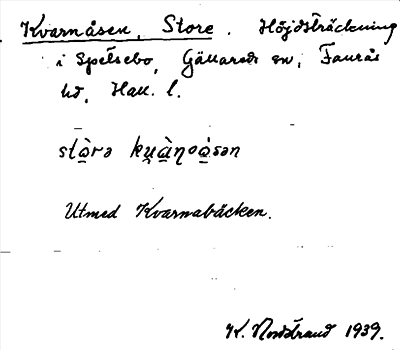 Kvarnåsen, Store. Höjdsträckning
i Spelsebo, Gällareds sn, Faurås
hd, Hall. l.
stɑ̀rə ku̯ɑ̀ɳoɑ́sən
Utmed Kvarnabäcken.
K. Nordstrand 1939.